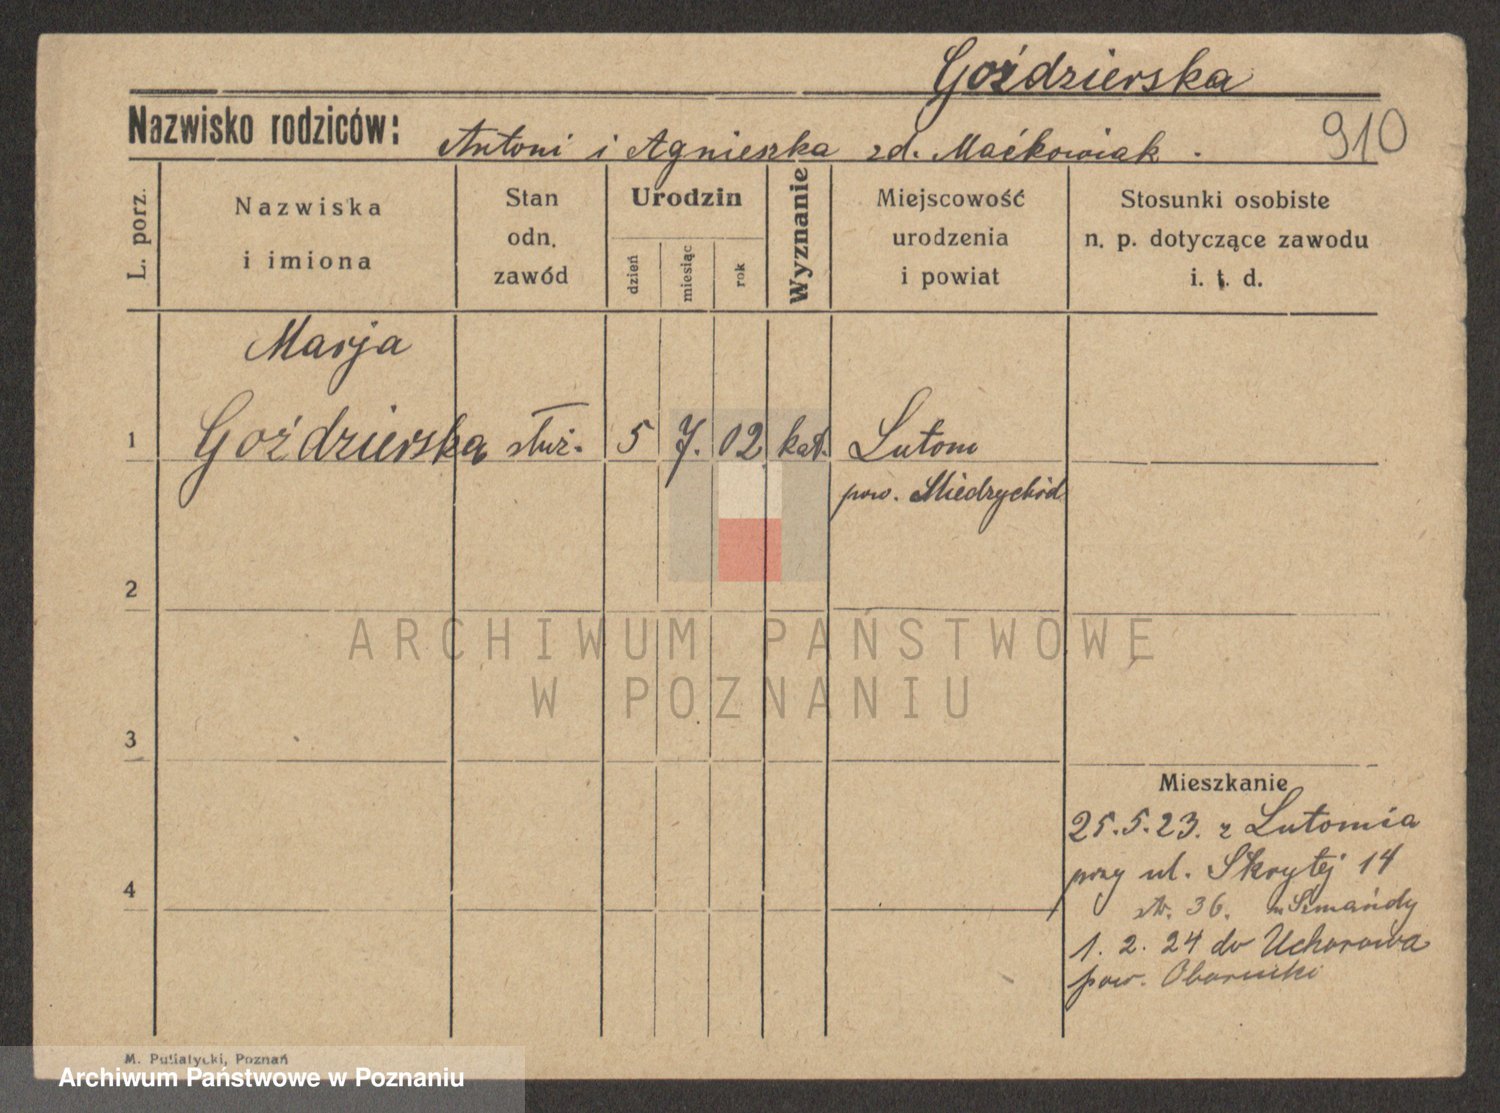 Goździerska
Nazwisko rodziców: Antoni i Agnieszka zd. Maćkowiak.
910
L. porz.
Nazwiska
i imiona
Stan
odn.
zawód
Urodzin
dzień
miesiąc
rok
Wyznanie
Miejscowość
urodzenia
i powiat
Stosunki osobiste
n. p. dotyczące zawodu
i. t. d.
Marja
1 Goździerska służ. 5 7. 02 kat. Lutom
pow. Miedzychód
2
ARCHIWUM PAŃSTWOWE
W POZNANIU
3
Mieszkanie
25.5.23. z Lutomia
przy ul. Skrytej 14
str. 36. Szmańdy
4
1. 2. 24 do Uchorowa
pow. Oborniki
M. Putiatycki, Poznań
Archiwum Państwowe w Poznaniu